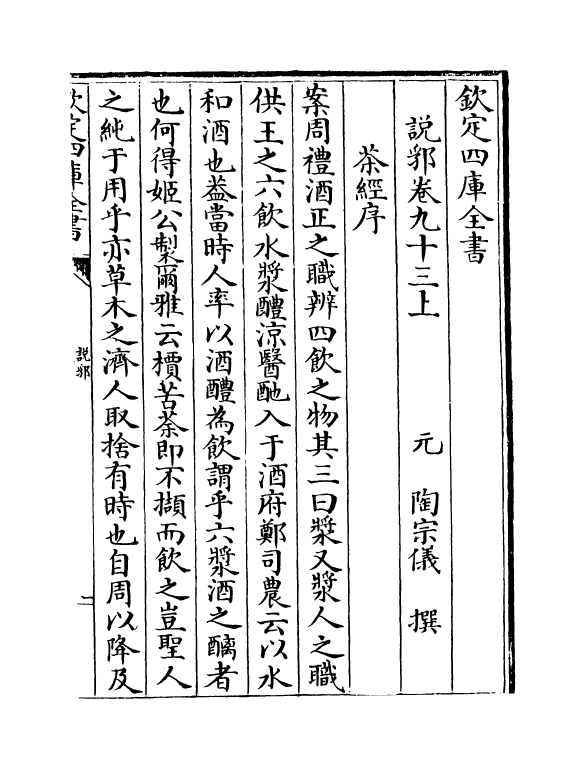 欽定四庫全書
說郛卷九十三上
元 陶宗儀 撰
茶經序
案周禮酒正之職辨四飲之物其三曰漿又漿人之職
供王之六飲水漿醴涼醫酏入于酒府鄭司農云以水
和酒也葢當時人率以酒醴為飲謂乎六漿酒之醨者
也何得姬公製爾雅云檟苦荼即不擷而飲之豈聖人
之純于用乎亦草木之濟人取捨有時也自周以降及
欽定四庫全書
說郛